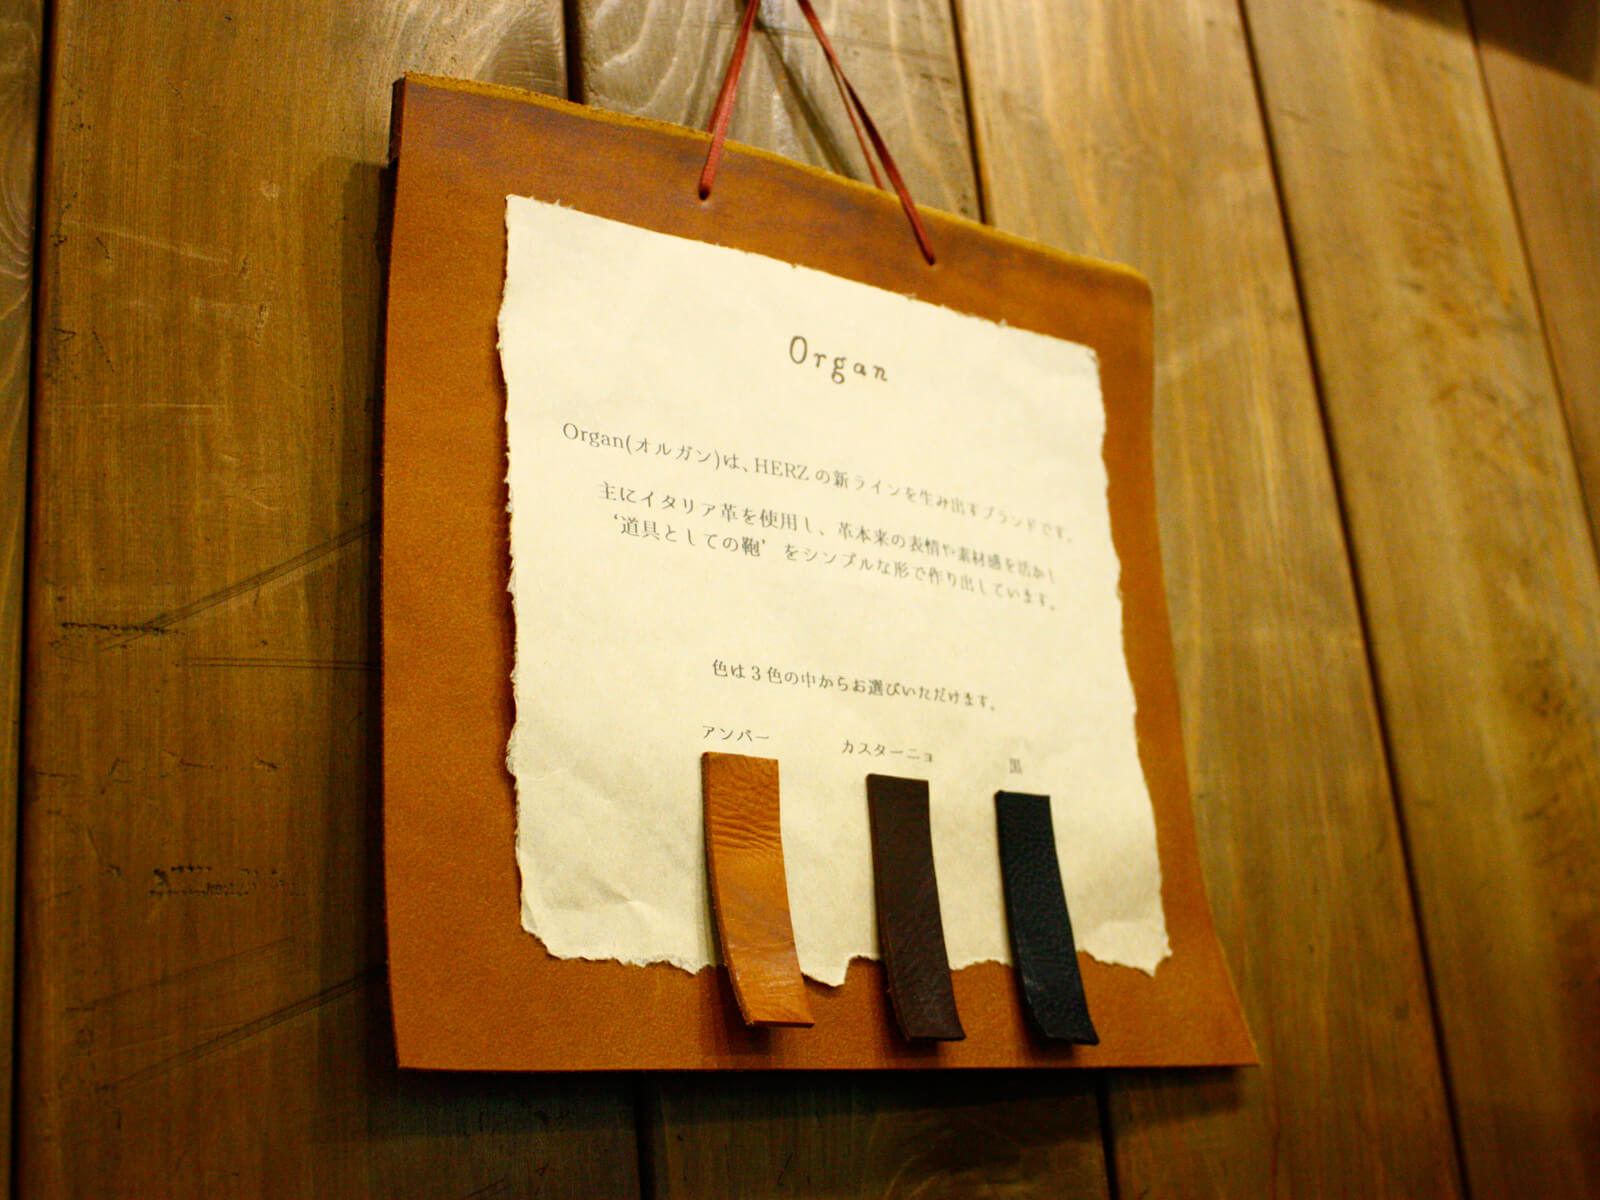 Organ
Organ(オルガン)は、HERZの新ラインを生み出すブランドです。
主にイタリア革を使用し、革本来の表情や素材感を活かし
‘道具としての鞄’をシンプルな形で作り出しています。
色は3色の中からお選びいただけます。
アンバー カスターニョ 黒